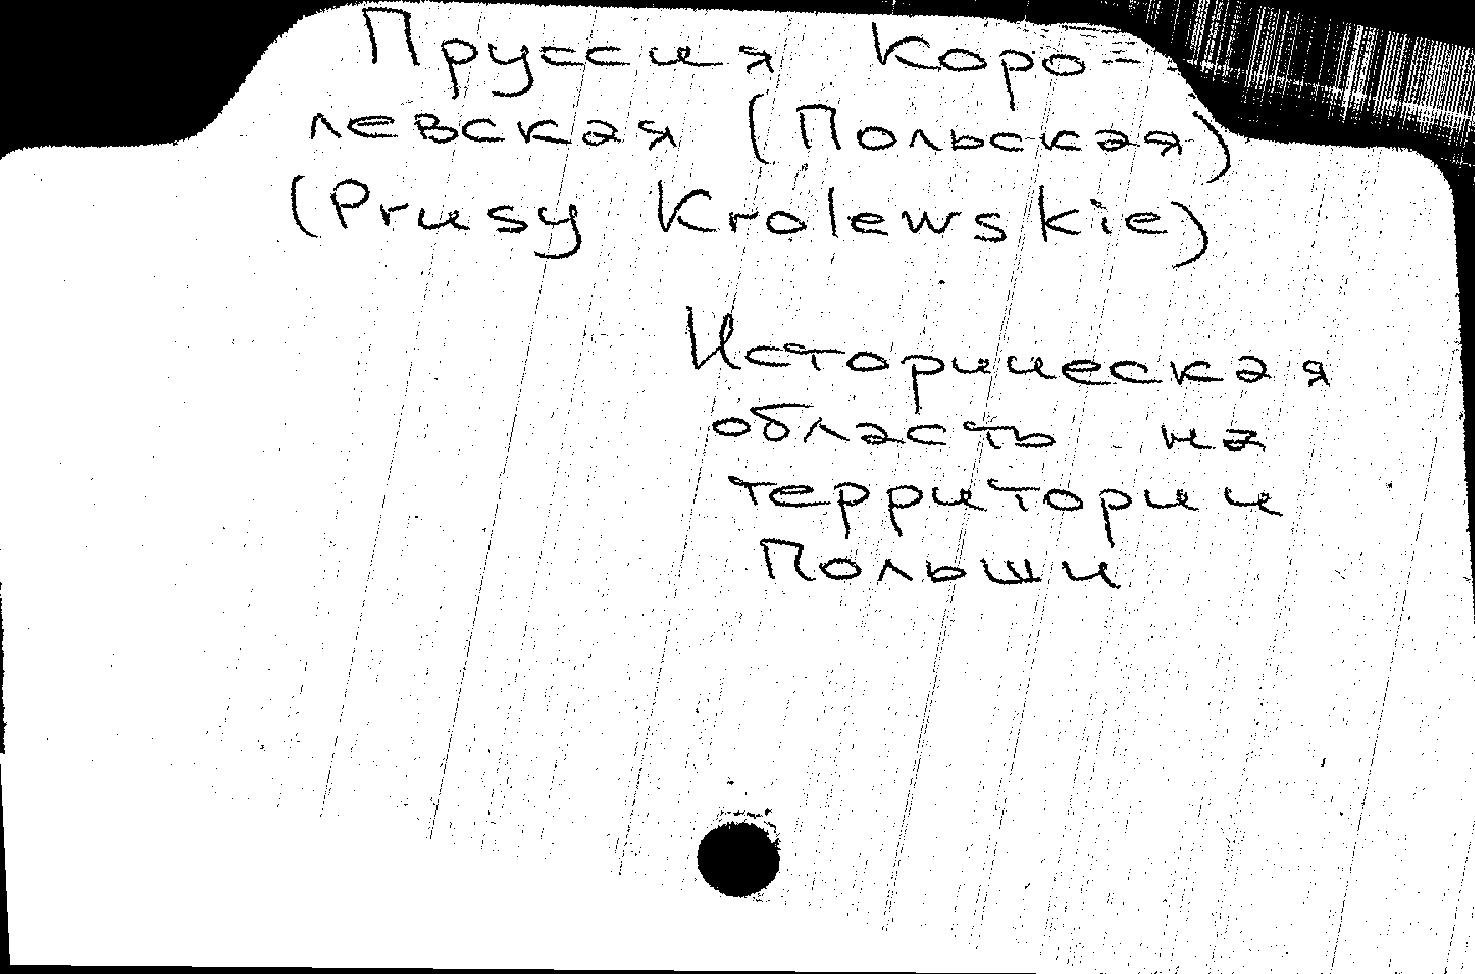 Пруссия Коро-
левская (Польская)
(Prusy Krolewskie)
Историческая
область на
территории
Польши